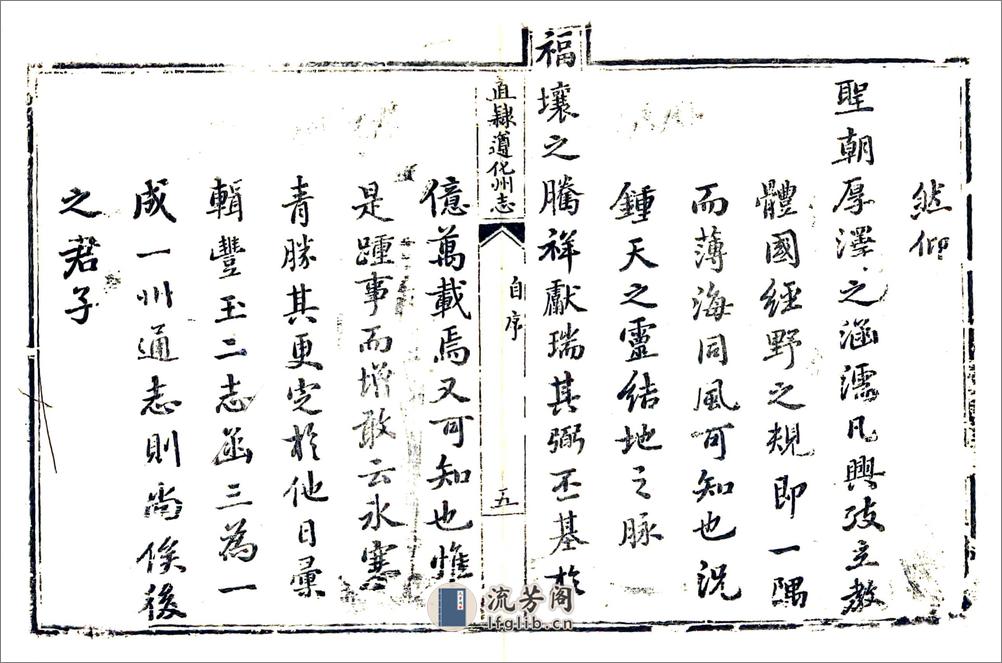 然仰
聖朝厚澤之涵濡凡興政立教
體國經野之規即一隅
而薄海同風可知也況
鍾天之靈結地之脉
福壤之騰祥獻瑞其弼丕基於
直隸遵化州志
自序
五
億萬載焉又可知也惟
是踵事而增敢云氷寒
青勝其更定於他日彙
輯豐玉二志函三為一
成一州通志則尚俟後
之君子
流芳阁
lfglib.cn